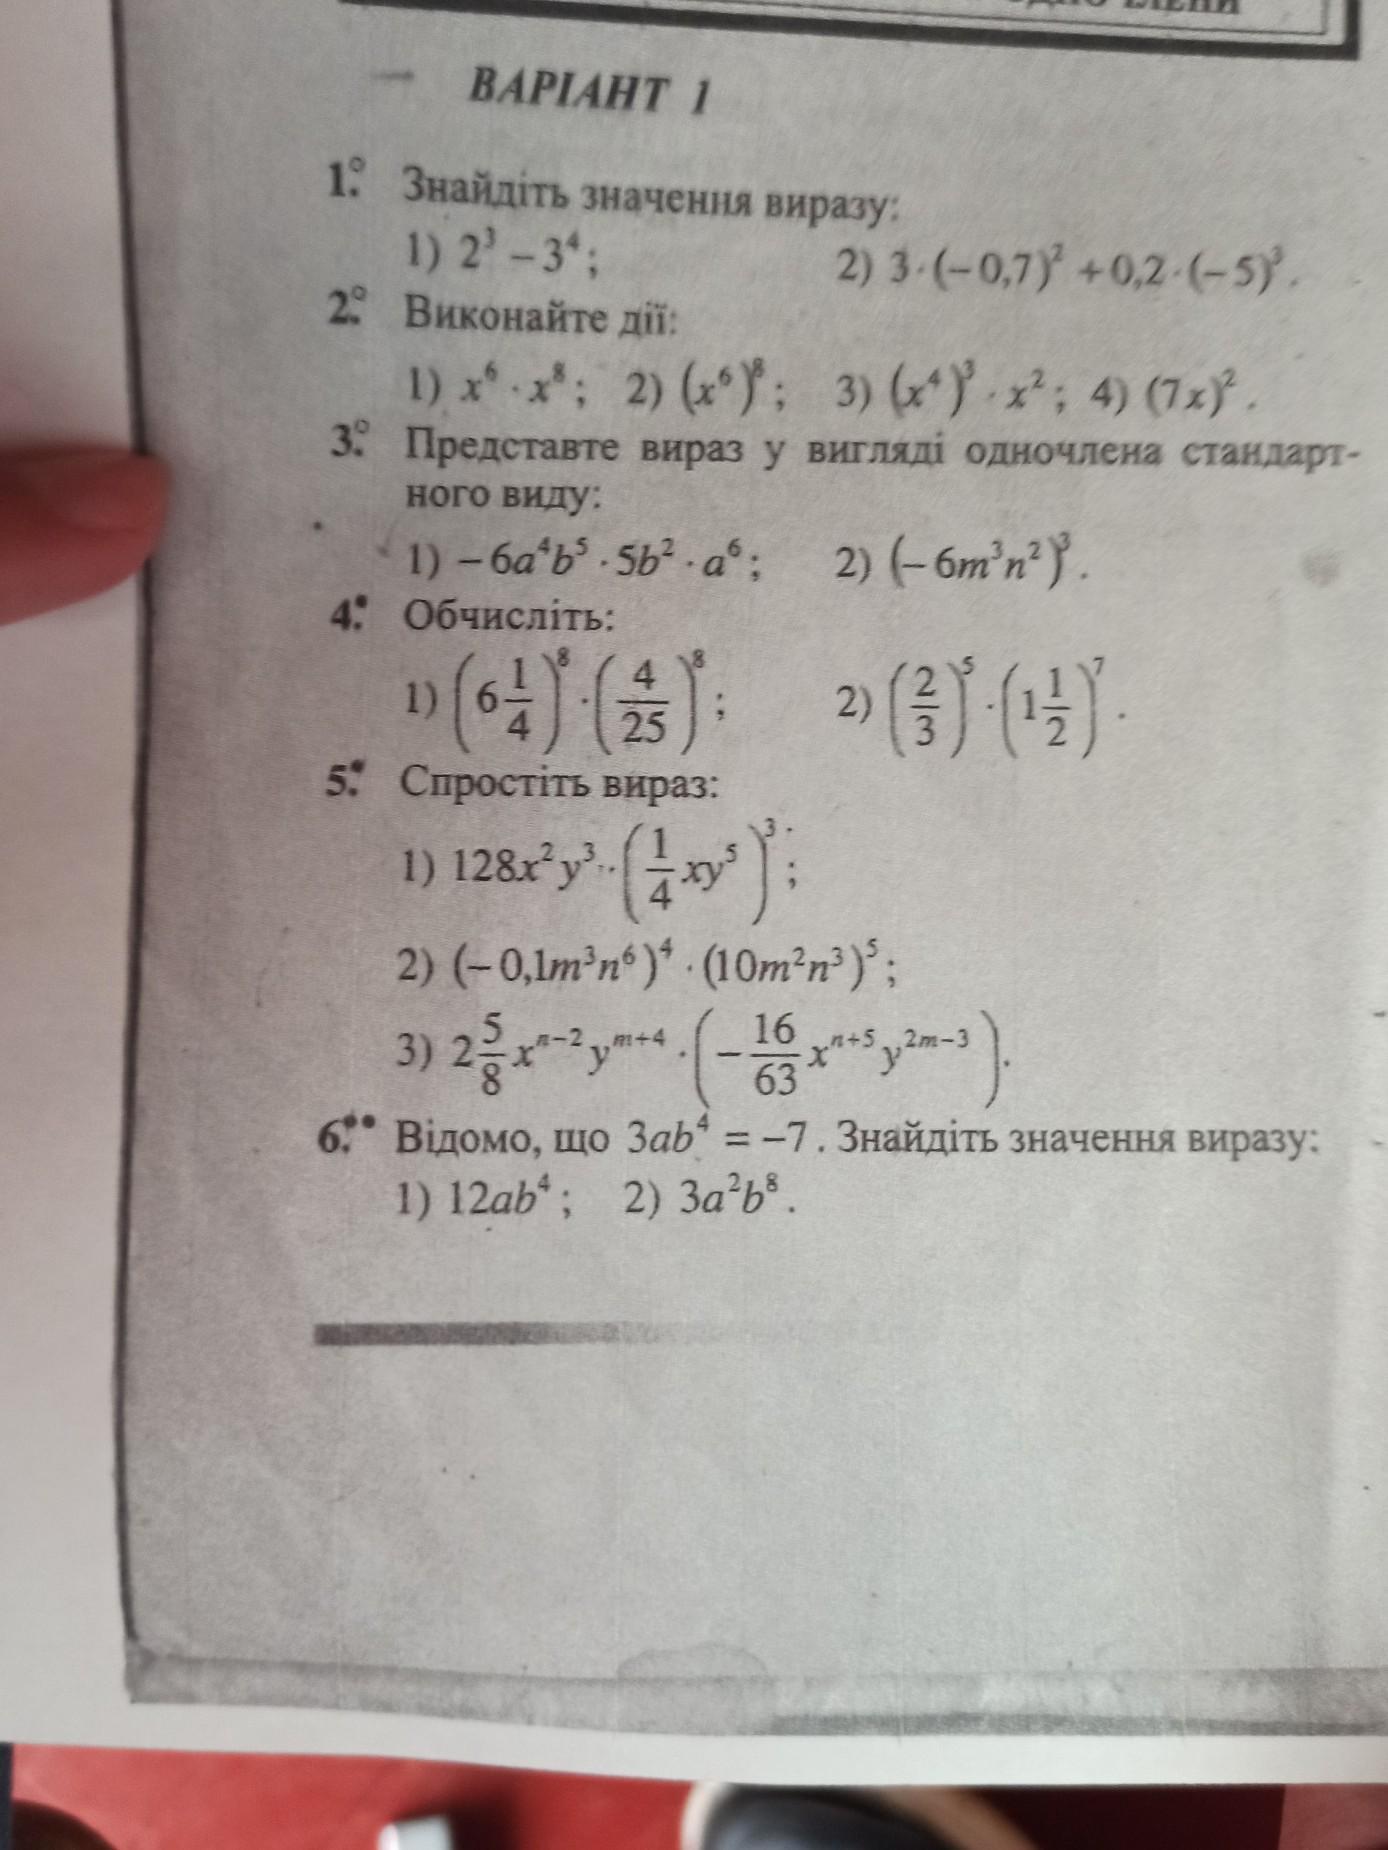 ВАРІАНТ 1
1.° Знайдіть значення виразу:
1) 2³ – 3⁴; 2) 3·(–0,7)² + 0,2·(–5)³.
2.° Виконайте дії:
1) x⁶ · x⁸; 2) (x⁶)⁸; 3) (x⁴)³ · x²; 4) (7x)².
3.° Представте вираз у вигляді одночлена стандарт-
ного виду:
1) –6a⁴b⁵ · 5b² · a⁶; 2) (–6m³n²)³.
4.• Обчисліть:
1) (6 1/4)⁸ · (4/25)⁸; 2) (2/3)⁵ · (1 1/2)⁷.
5.• Спростіть вираз:
1) 128x²y³ · (1/4 xy⁵)³;
2) (–0,1m³n⁶)⁴ · (10m²n³)⁵;
3) 2 5/8 xⁿ⁻²yᵐ⁺⁴ · (–16/63 xⁿ⁺⁵y²ᵐ⁻³).
6.•• Відомо, що 3ab⁴ = –7. Знайдіть значення виразу:
1) 12ab⁴; 2) 3a²b⁸.